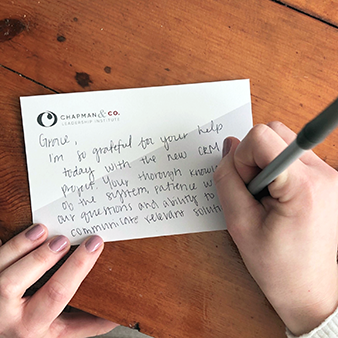 CHAPMAN & CO.
LEADERSHIP INSTITUTE
Grace,
I'm so grateful for your help
today with the new CRM
project. Your thorough
of the system, patience
our questions and ability to
communicate relevant